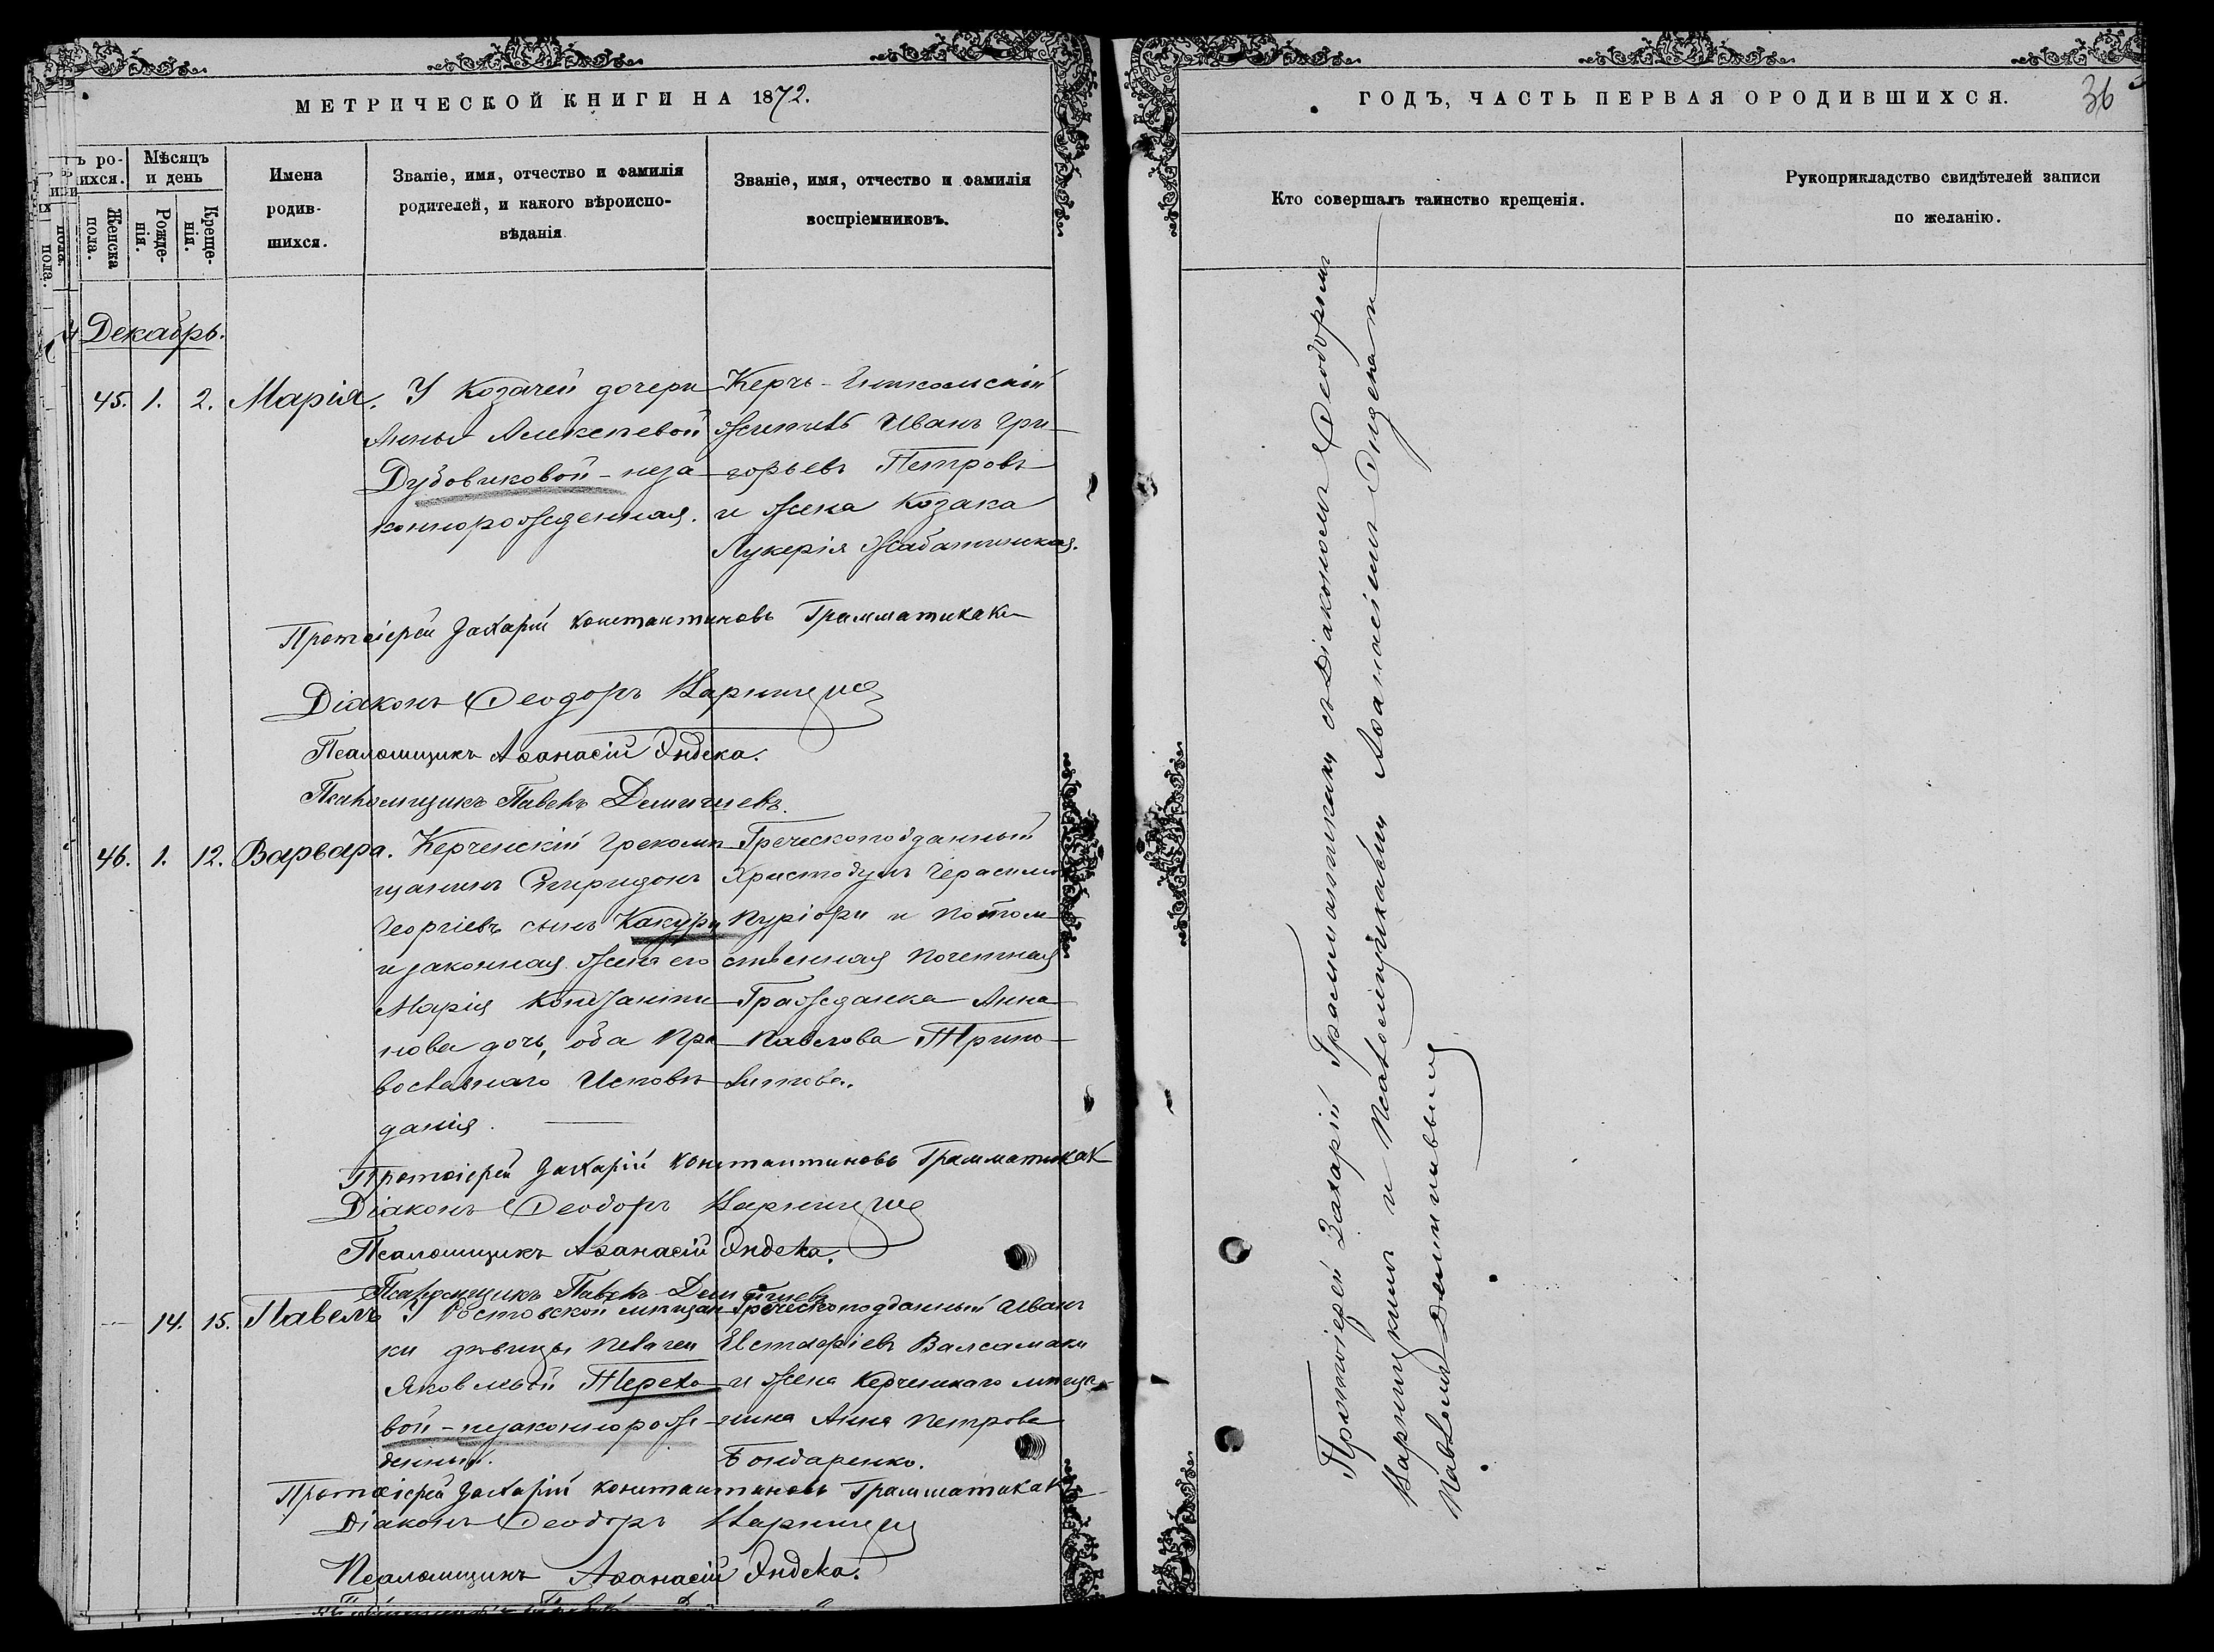 МЕТРИЧЕСКОЙ КНИГИ НА 1872.
ъ ро-
ихся.
Мѣсяцъ
и день
Женска
пола.
Рожде-
нія.
Креще-
нія.
Имена
родив-
шихся.
Званіе, имя, отчество и фамилія
родителей, и какого вѣроиспо-
вѣданія
Званіе, имя, отчество и фамилія
воспріемниковъ.
Декабрь.
45. 1. 2. Марія.
У Козачей дочери
Анны Алексѣевой
Дубовиковой - неза
коннорожденная.
Керчь-Еникольскій
житель Иванъ Гри-
горьевъ Петровъ
и жена Козака
Лукерія Жабатинская.
Протоіерей Захарій Константиновъ Грамматикаки
Діаконъ Ѳеодоръ
Псаломщикъ Аѳанасій Эндека.
Псаломщикъ Павелъ
46. 1. 12. Варвара.
Керченскій Грекомѣ
щанинъ Спиридонъ
Георгіевъ сынъ Какури
и законная жена его
Марія Константи
нова дочь, оба Пра
вославнаго Исповѣ
данія.
Греческоподданный
Христодулъ Герасимо
и Потом
ственная Почетная
Гражданка Анна
Павлова
Протоіерей Захарій Константиновъ Грамматикак
Діаконъ Ѳеодоръ
Псаломщикъ Аѳанасій Эндека.
Псаломщикъ Павелъ
14. 15. Павелъ
У Ростовской мѣщан
ки дѣвицы Пелагеи
Яковлевой Терехо
вой - незаконнорож-
денный.
Греческоподданный Иванъ
Евстафіевъ Валсамаки
и жена Керченскаго мѣща-
нина Анна Петрова
Бондаренко.
Протоіерей Захарій Константиновъ Грамматикак
Діаконъ Ѳеодоръ
Псаломщикъ Аѳанасій Эндека.
ГОДЪ, ЧАСТЬ ПЕРВАЯ О РОДИВШИХСЯ.
36
Кто совершалъ таинство крещенія.
Рукоприкладство свидѣтелей записи
по желанію.
Протоіерей Захарій Грамматикаки съ Діакономъ Ѳеодоромъ
и Псаломщиками Аѳанасіемъ Эндекаи
Павломъ